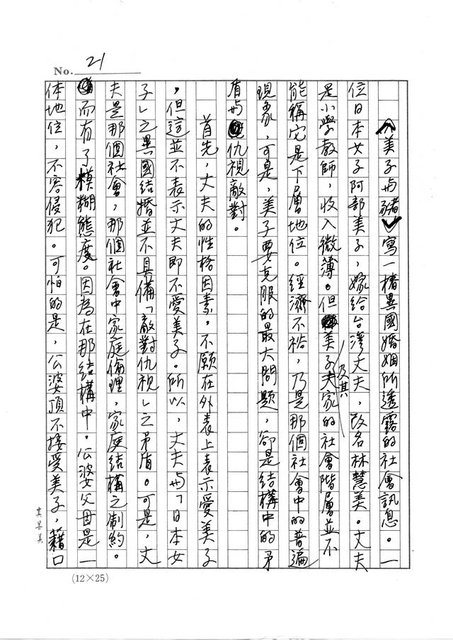 No. 21
〈美子與豬〉寫一樁異國婚姻所透露的社會訊息。一
位日本女子阿部美子,嫁給台灣丈夫,改名林慧美子。丈夫
是小學教師,收入微薄。但美子及其夫家的社會階層並不
能稱它是下層地位。經濟不裕,乃是那個社會中的普遍
現象,可是,美子要克服的最大問題,卻是結構中的矛
盾與仇視敵對。
首先,丈夫的性格因素,不願在外表上表示愛美子
,但這並不表示丈夫即不愛美子。所以,丈夫與「日本女
子」之異國結婚並不具備「敵對仇視」之矛盾。可是,丈
夫是那個社會,那個社會中家庭倫理,家庭結構之制約。
而有了模糊態度。因為在那結構中。公婆父母是一
体地位,不容侵犯。可怕的是,公婆頂不接受美子,藉口
(12×25)